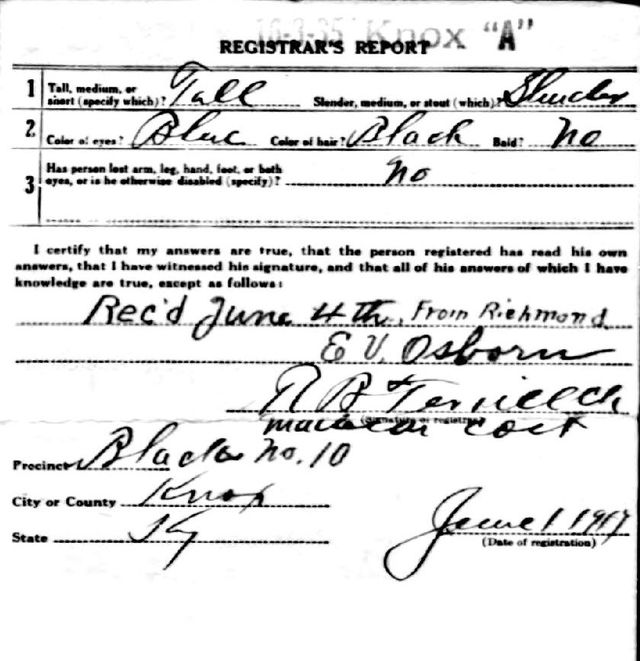 16-3-35 Knox "A"
REGISTRAR'S REPORT
1 Tall, medium, or short (specify which)? Tall Slender, medium, or stout (which)? Slender
2 Color of eyes? Blue Color of hair? Black Bald? No
3 Has person lost arm, leg, hand, foot, or both eyes, or is he otherwise disabled (specify)? No
I certify that my answers are true, that the person registered has read his own
answers, that I have witnessed his signature, and that all of his answers of which I have
knowledge are true, except as follows:
Rec'd June 4th, From Richmond
E V. Osborn
R B
(Signature of registrar)
Precinct No. 10
City or County Knox
State Ky
June 1 1917
(Date of registration)